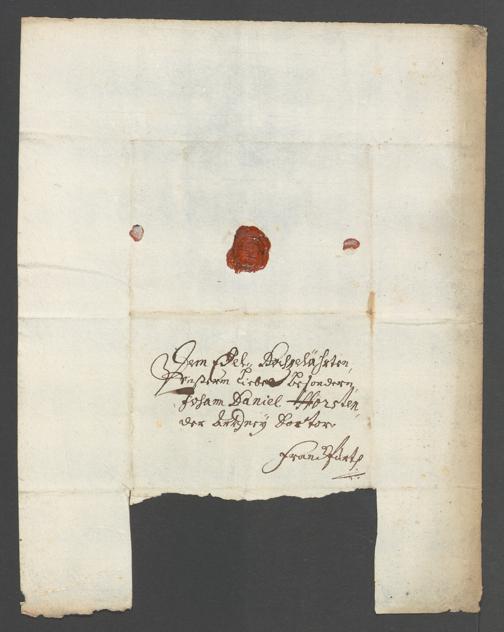 Dem Edel, Hochgelährten,
Unßerm Lieben Besondern,
Joham Daniel Horsten,
der Artzney Doctor.
Franckfurt